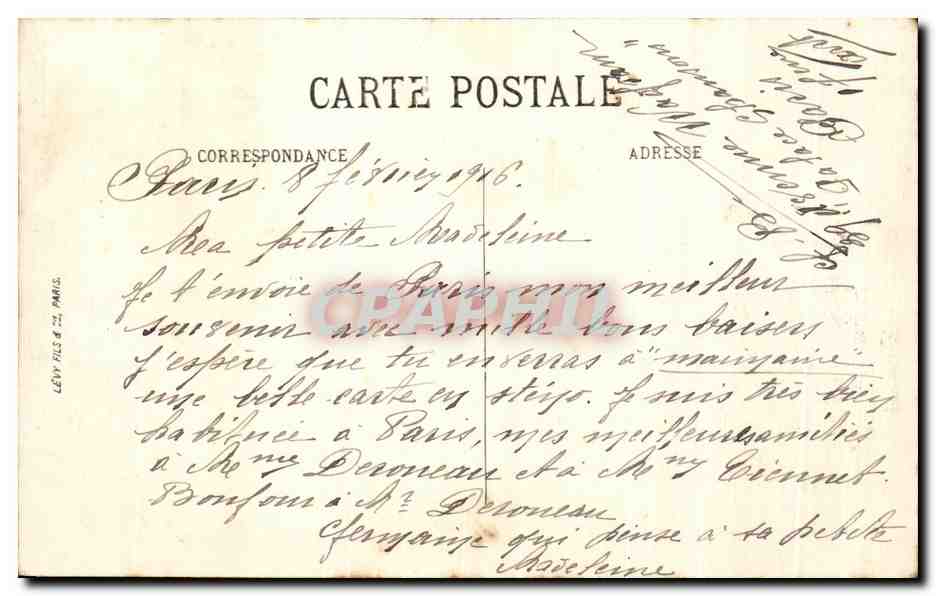 CARTE POSTALE
CORRESPONDANCE
ADRESSE
Paris 8 février 1916.
Ma petite Madeleine
Je t'envoie de Paris mon meilleur
souvenir avec mille bons baisers
j'espère que tu enverras à "mainaine"
une belle carte en sténo. Je suis très bien
habituée à Paris, mes meilleures amitiés
à Mme Deroneau et à Mme Tiennet.
Bonjour à Mr Deroneau
Germaine qui pense à sa petite
Madeleine
Place
Paris
LÉVY FILS & Cie, PARIS.
CPAPHIL